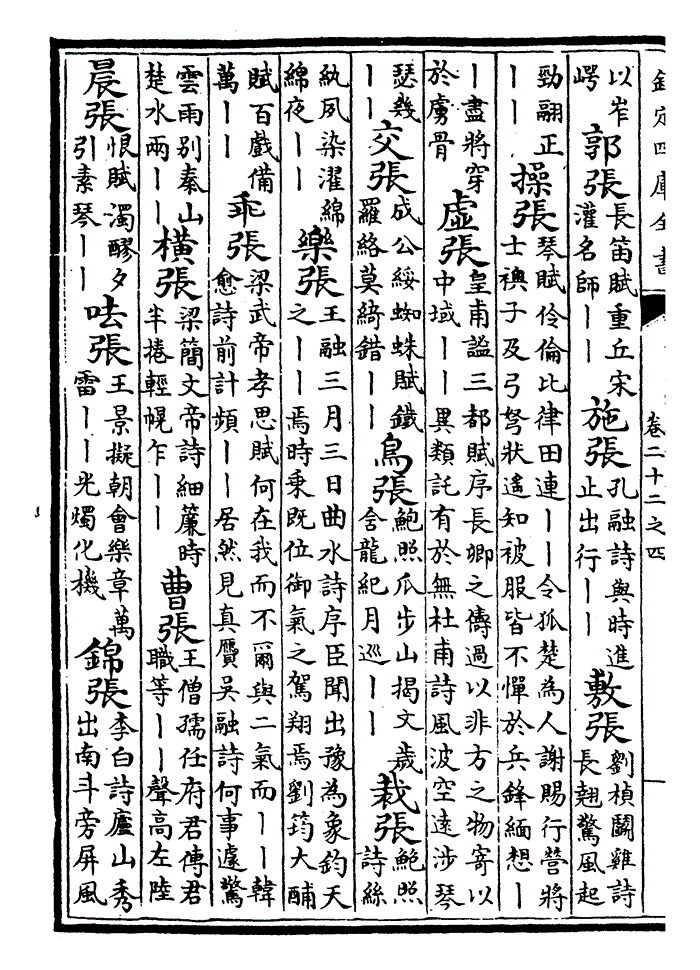 欽定四庫全書 卷二十二之四
以岑崿 郭張 長笛賦重丘宋灌名師丨丨 施張 孔融詩與時進止出行丨丨 敷張 劉楨鬭雞詩長翹驚風起
勁翮正丨丨 操張 琴賦伶倫比律田連丨丨令狐楚為人謝賜行營將士襖子及弓弩狀遙知被服皆不憚於兵鋒緬想丨
丨盡將穿於虜骨 虛張 皇甫謐三都賦序長卿之儔過以非方之物寄以中域丨丨異類託有於無杜甫詩風波空遠涉琴
瑟幾丨丨 交張 成公綏蜘蛛賦鐵羅絡莫綺錯丨丨 鳥張 鮑照瓜步山揭文歲舍龍紀月巡丨丨 栽張 鮑照詩絲
紈夙染濯綿綿夜丨丨 樂張 王融三月三日曲水詩序臣聞出豫為象鈞天之丨丨焉時乘既位御氣之駕翔焉劉筠大酺
賦百戲備萬丨丨 乖張 梁武帝孝思賦何在我而不爾與二氣而丨丨韓愈詩前計頻丨丨居然見真贗吳融詩何事遽驚
雲雨別秦山楚水兩丨丨 橫張 梁簡文帝詩細簾時半捲輕幌乍丨丨 曹張 王僧孺任府君傳君職等丨丨聲高左陸
晨張 恨賦濁醪夕引素琴丨丨 呿張 王景擬朝會樂章萬雷丨丨光燭化機 錦張 李白詩廬山秀出南斗旁屏風